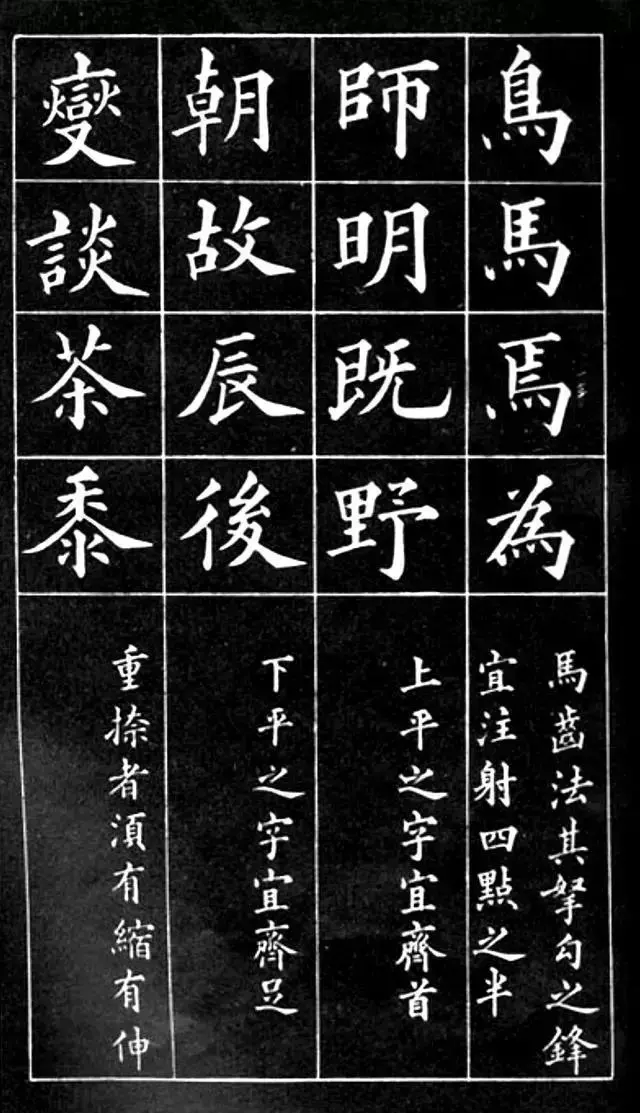 鳥馬焉為
馬齒法其拏勾之鋒
宜注射四點之半
師明既野
上平之字宜齊首
朝故辰後
下平之字宜齊足
變談茶黍
重捺者湏有縮有伸